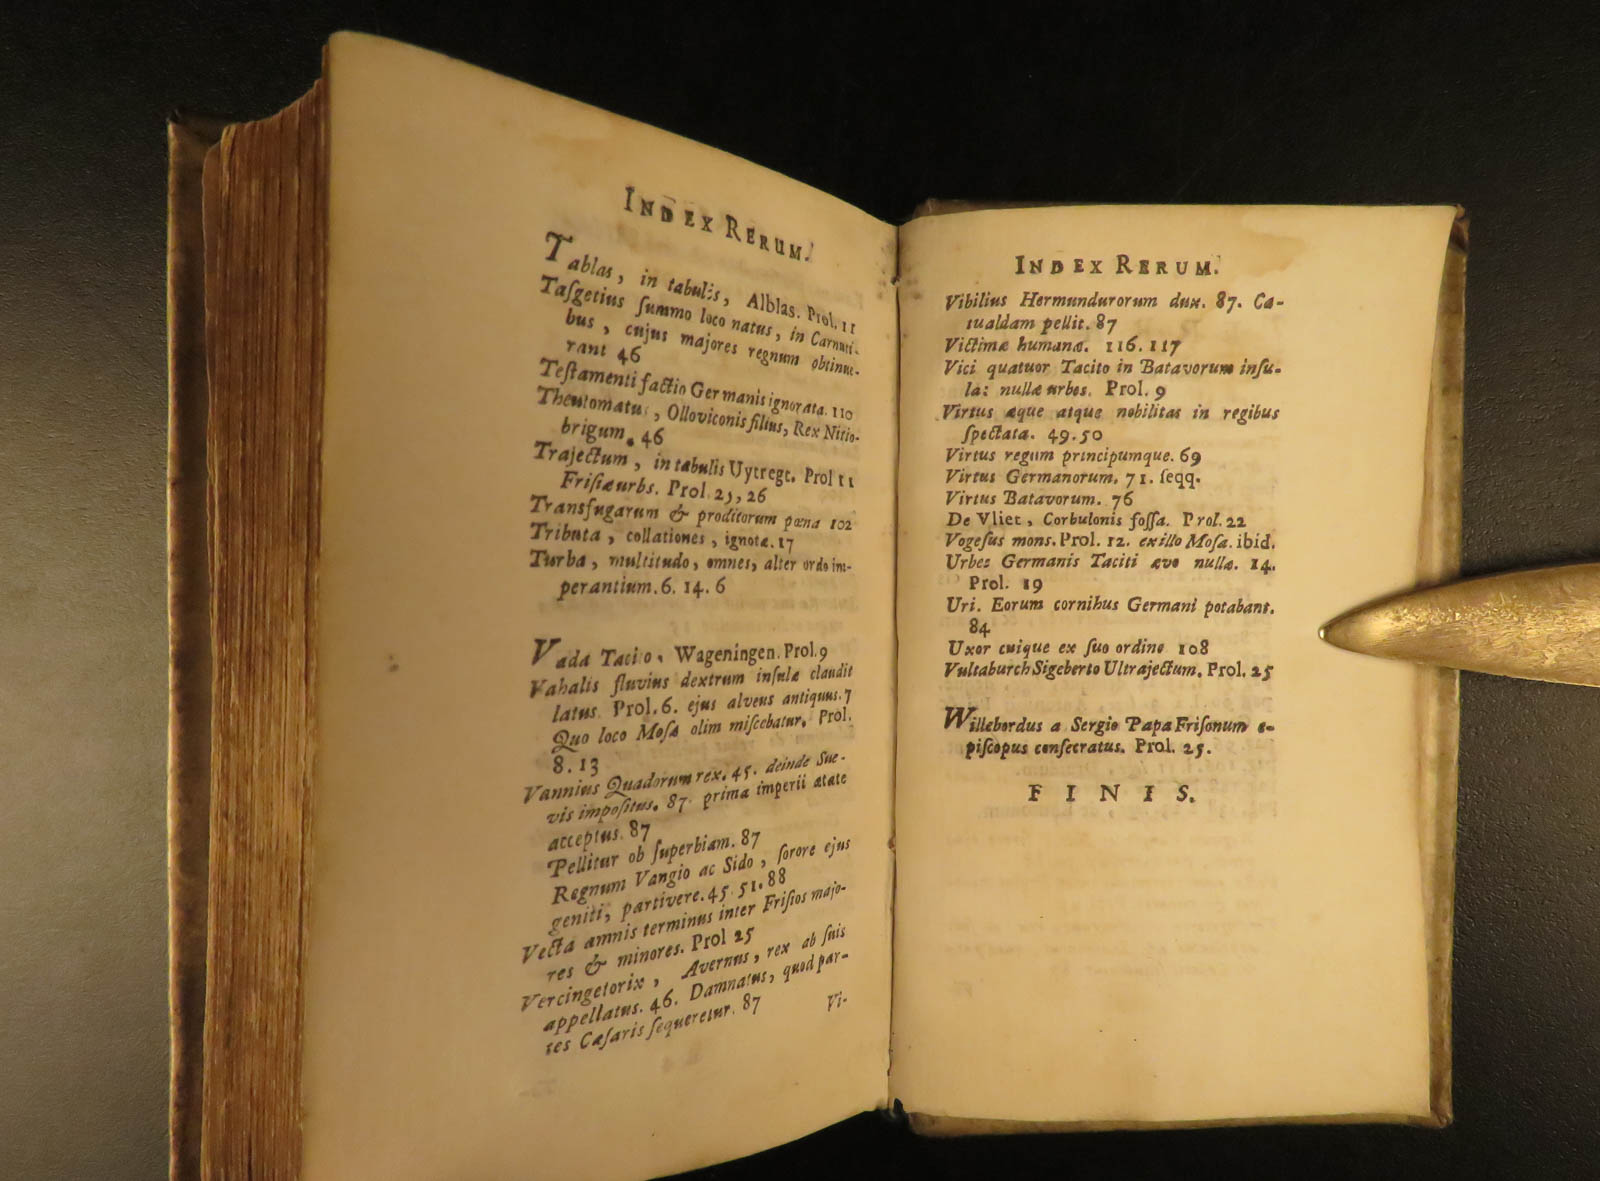 INDEX RERUM.
Tablas, in tabulis, Alblas. Prol. 11
Taſgetius ſummo loco natus, in Carnuti-
bus, cujus majores regnum obtinue-
rant 46
Teſtamenti factio Germanis ignorata. 110
Theutomatus, Olloviconis filius, Rex Nitio-
brigum. 46
Trajectum, in tabulis Uytregt. Prol 11
Friſiæ urbs. Prol. 25, 26
Transfugarum & proditorum pœna 102
Tributa, collationes, ignotæ. 17
Turba, multitudo, omnes, alter ordo im-
perantium. 6. 14. 6
Vada Tacito, Wageningen. Prol. 9
Vahalis fluvius dextrum inſulæ claudit
latus. Prol. 6. ejus alveus antiquus. 7
Quo loco Moſæ olim miſcebatur. Prol.
8. 13
Vannius Quadorum rex. 45. deinde Sue-
vis impoſitus. 87. prima imperii ætate
acceptus. 87
Pellitur ob ſuperbiam. 87
Regnum Vangio ac Sido, ſorore ejus
geniti, partivere. 45. 51. 88
Vecta amnis terminus inter Friſios majo-
res & minores. Prol 25
Vercingetorix, Avernus, rex ab ſuis
appellatus. 46. Damnatus, quod par-
tes Cæſaris ſequeretur. 87
Vi-
INDEX RERUM.
Vibilius Hermundurorum dux. 87. Ca-
tualdam pellit. 87
Victimæ humanæ. 116. 117
Vici quatuor Tacito in Batavorum inſu-
la: nullæ urbes. Prol. 9
Virtus æque atque nobilitas in regibus
ſpectata. 49. 50
Virtus regum principumque. 69
Virtus Germanorum. 71. ſeqq.
Virtus Batavorum. 76
De Vliet, Corbulonis foſſa. Prol. 22
Vogeſus mons. Prol. 12. ex illo Moſa. ibid.
Urbes Germanis Taciti ævo nullæ. 14.
Prol. 19
Uri. Eorum cornibus Germani potabant.
84
Uxor cuique ex ſuo ordine 108
Vultaburch Sigeberto Ultrajectum. Prol. 25
Willebordus a Sergio Papa Friſonum e-
piſcopus conſecratus. Prol. 25.
FINIS.